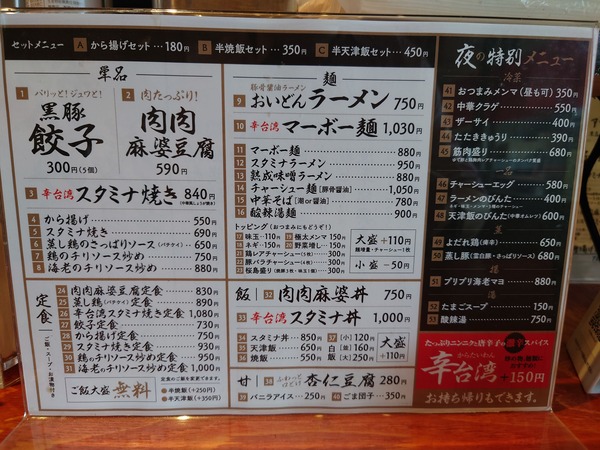 セットメニュー A から揚げセット…180円 B 半焼飯セット…350円 C 半天津飯セット…450円
単品
1 パリッと!ジュワと!
黒豚餃子
300円(5個)
2 肉たっぷり!
肉肉麻婆豆腐
590円
3 辛台湾 スタミナ焼き 840円
4 から揚げ 550円
5 スタミナ焼き 690円
6 蒸し鶏のさっぱりソース(パクチイ) 650円
7 鶏のチリソース炒め 750円
8 海老のチリソース炒め 880円
定食
ご飯・スープ・お漬物付き
24 肉肉麻婆豆腐定食 830円
25 蒸し鶏(パクチイ)定食 890円
26 辛台湾スタミナ焼き定食 1,080円
27 餃子定食 730円
28 から揚げ定食 750円
29 スタミナ焼き定食 930円
30 鶏のチリソース炒め定食 950円
31 海老のチリソース炒め定食 1,080円
ご飯大盛 無料
定食のご飯を変更できます。
半焼飯(+250円)
半天津飯(+350円)
麺
豚骨醤油ラーメン
9 おいどんラーメン 750円
10 辛台湾 マーボー麺 1,030円
11 マーボー麺 880円
12 スタミナラーメン 950円
13 熟成味噌ラーメン 880円
14 チャーシュー麺[豚骨醤油] 1,050円
15 中華そば[湯or醤油] 780円
16 酸辣湯麺 900円
トッピング(おつまみにもどうぞ!)
17 味玉…110円 19 極太メンマ 150円
18 ネギ…150円 20 野菜増し…150円
21 鶏レアチャーシュー(5枚)…200円
22 豚バラチャーシュー(4枚)…200円
23 桜島盛り(鶏豚3枚・味玉1個) 300円
大盛 +110円
小盛 -50円
飯
32 肉肉麻婆丼 750円
33 辛台湾 スタミナ丼 1,000円
34 スタミナ丼 850円
35 天津飯 650円
36 焼飯 550円
37 白飯 [小] 110円 [並] 160円 [大] 250円
大盛 +110円
甘
38 杏仁豆腐 280円
39 バニラアイス…350円 40 ごま団子…350円
夜の特別メニュー
冷菜
41 おつまみメンマ(昼も可) 350円
42 中華クラゲ 550円
43 ザーサイ 400円
44 たたききゅうり 390円
45 筋肉盛り 680円
一品
46 チャーシューエッグ 580円
47 ラーメンのびんた 420円
48 天津飯のびんた(中華オムレツ) 600円
蒸
49 よだれ鶏(痺辛) 650円
50 蒸し豚(雲白豚・さっぱりソース) 680円
51 プリプリ海老マヨ 880円
湯
52 たまごスープ 150円
53 酸辣湯 750円
たっぷりニンニクと唐辛子の激辛スパイス
辛台湾 +150円
からたいわん
お持ち帰りもできます。